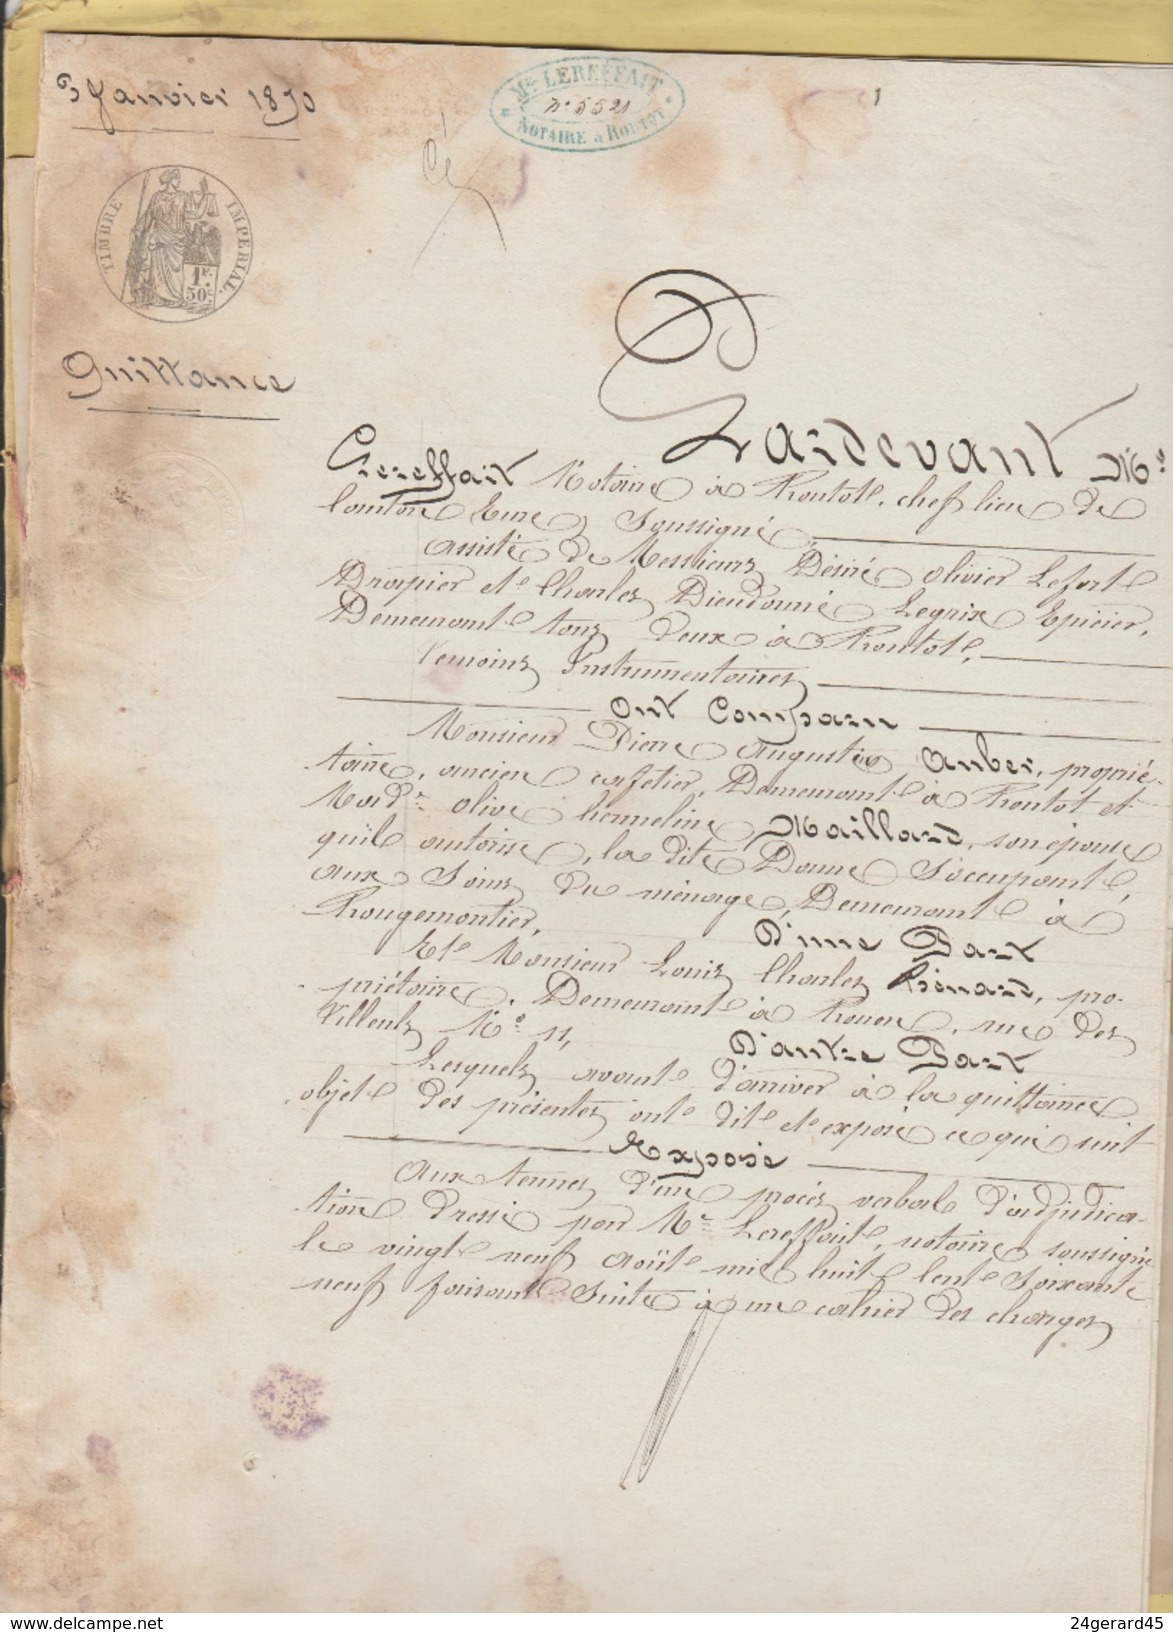 3 Janvier 1870
Me LEREFFAIT
No 5521
NOTAIRE à ROUTOT
1
TIMBRE IMPERIAL
1 F.
50 c.
Quittance
Pardevant Me
Lereffait Notaire à Routot, chef lieu de
Canton Eure, Soussigné
assisté de Messieurs Désiré Olivier Lefort
Drapier et Charles Dieudonné Legrix Epicier,
Demeurant tous deux à Routot,
Temoins Instrumentaires
Ont Comparu
Monsieur Pierre Augustin Auber, proprié-
taire, ancien cafetier, Demeurant à Routot et
Made Olive Hermeline Maillard, son épouse
qu'il autorise, la dite Dame S'occupant,
aux Soins du ménage, Demeurant à
Rougemontier,
D'une Part
Et Monsieur Louis Charles Hénard, pro-
priétaire, Demeurant à Rouen, rue des
No 11,
D'autre Part
Lesquels avant d'arriver à la quittance
objet des présentes ont dit et exposé ce qui suit
Exposé
Aux termes d'un procès verbal d'adjudica-
tion dressé par Me Lereffait, notaire soussigné
le vingt neuf Août mil huit Cent Soixante
neuf faisant Suite à un cahier des charges
www.delcampe.net
24gerard45